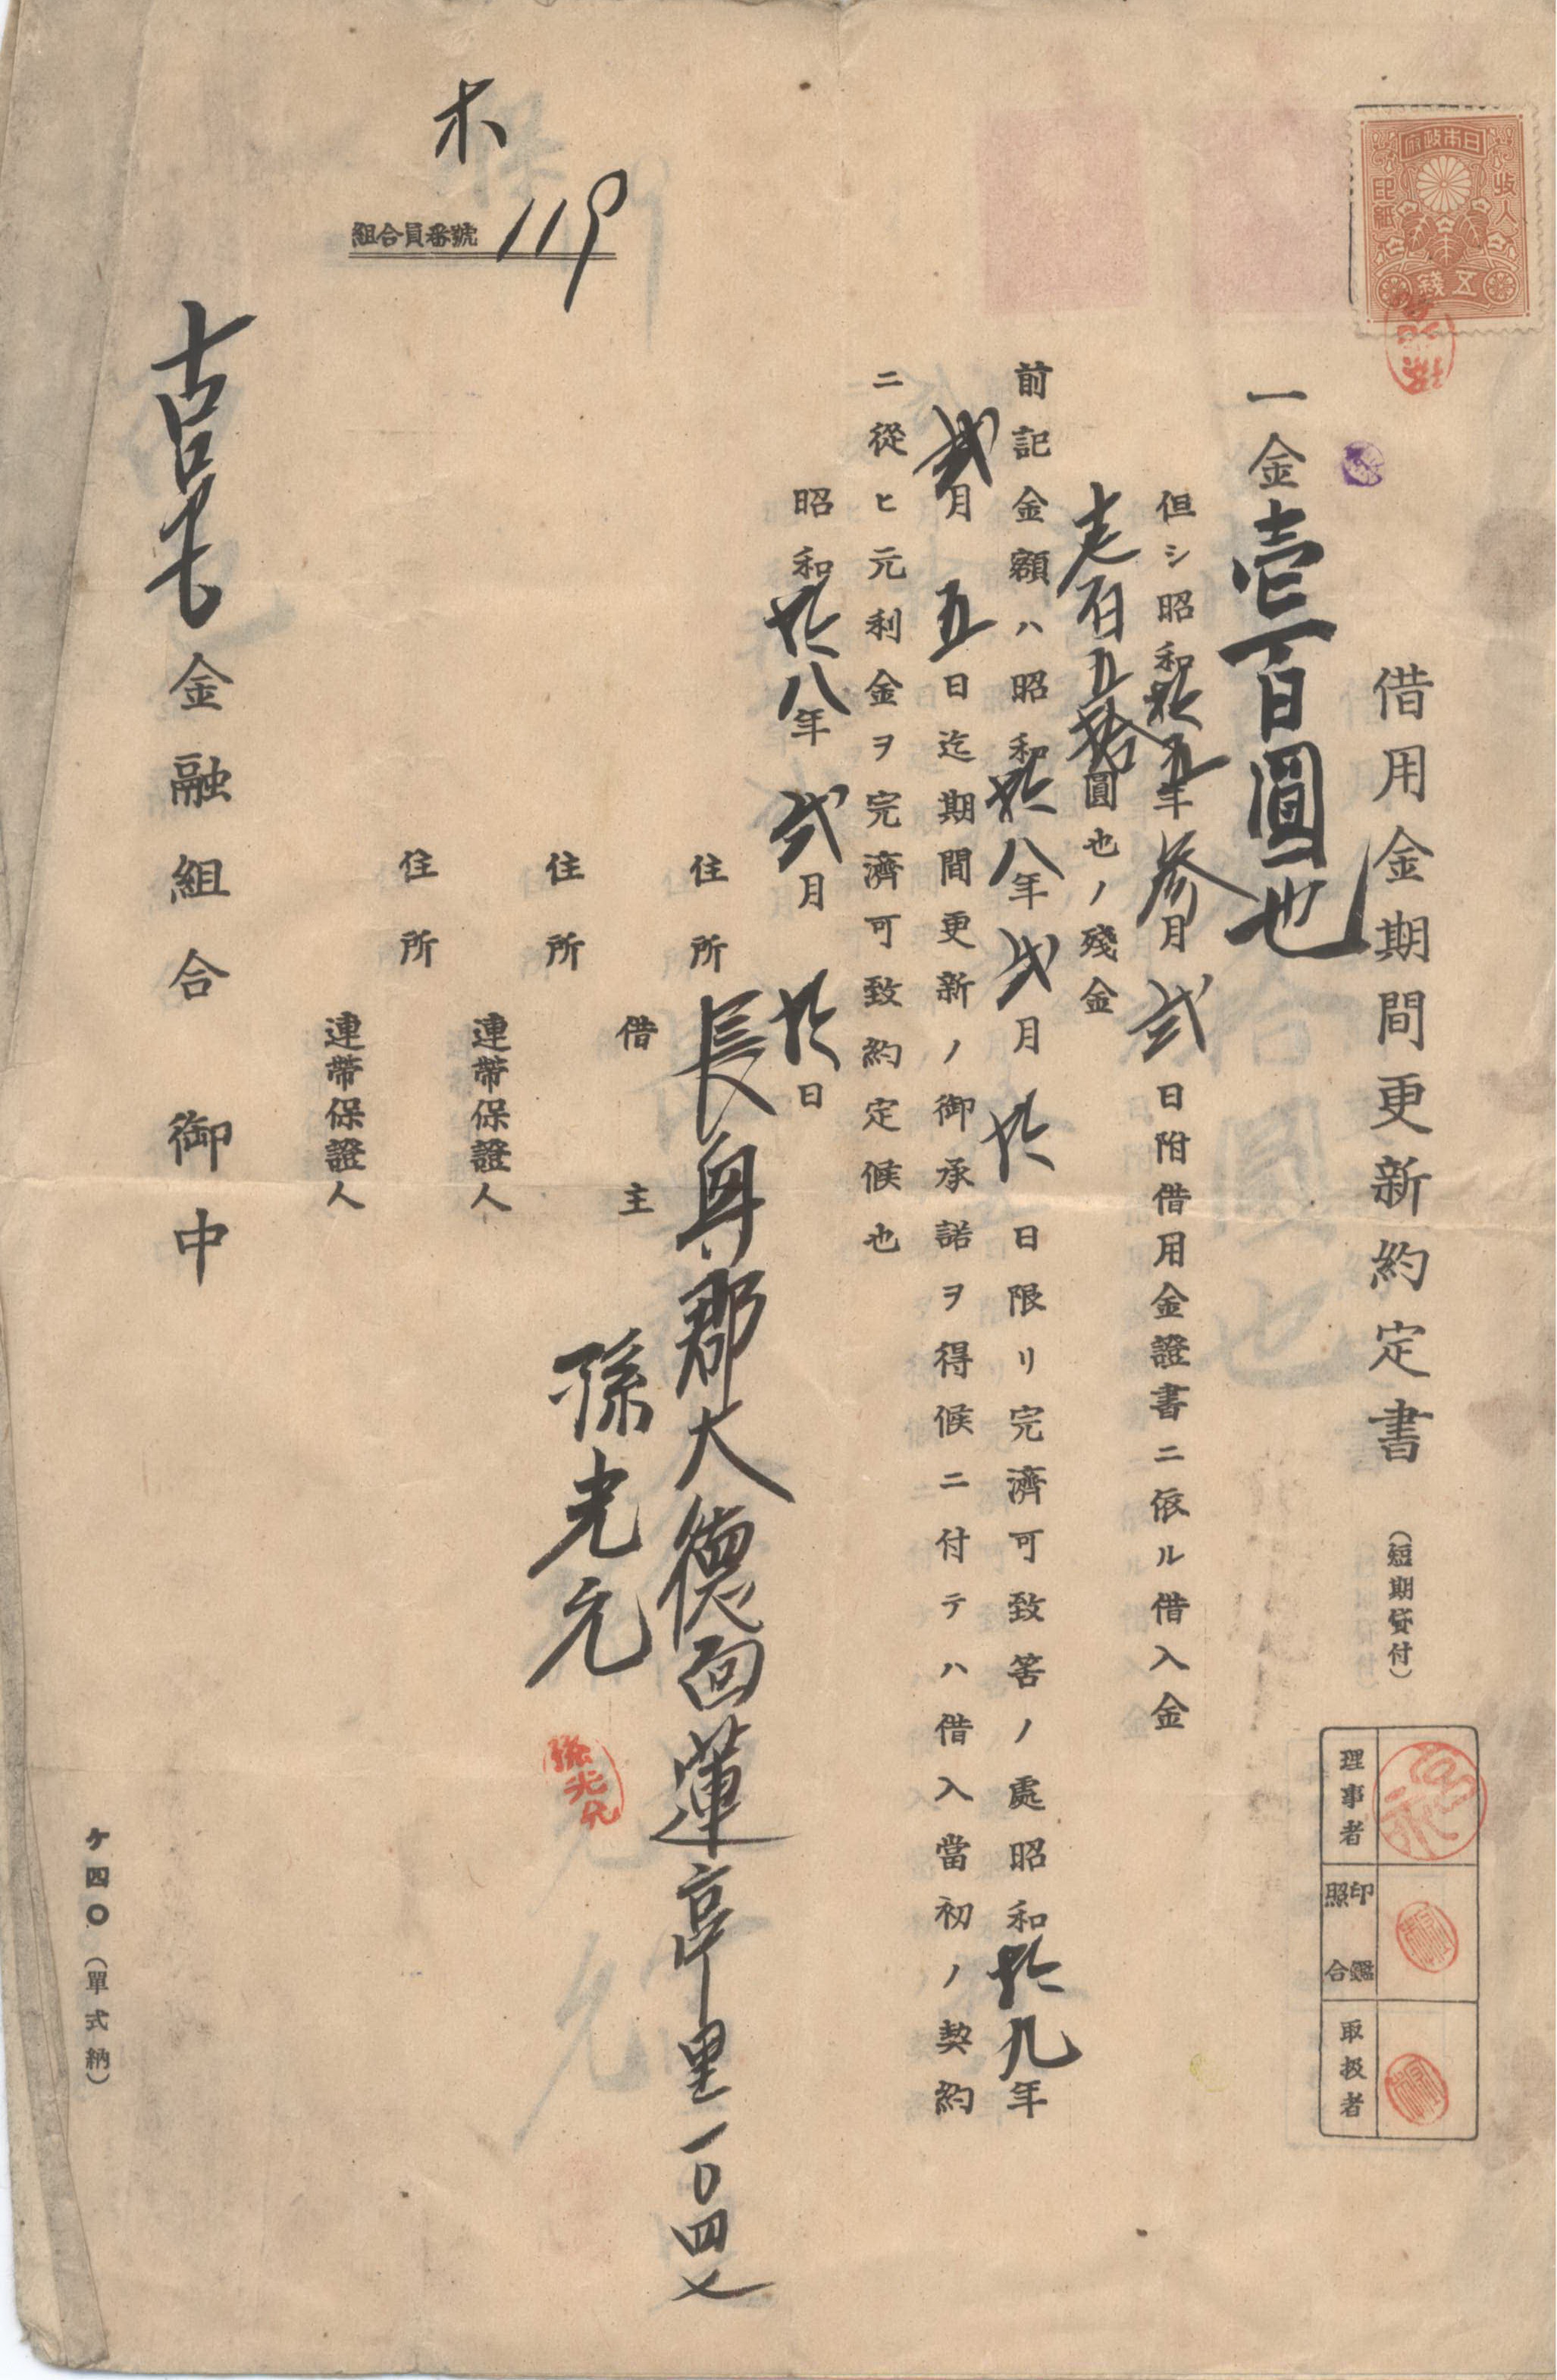 日本政府
收入
印紙
五錢
借用金期間更新約定書 (短期貸付)
一金壱百圓也
但シ昭和拾五年參月弐日附借用金證書ニ依ル借入金
壱百五拾圓也ノ殘金
前記金額ハ昭和拾八年弐月拾日限リ完濟可致筈ノ處昭和拾九年
弐月五日迄期間更新ノ御承諾ヲ得候ニ付テハ借入當初ノ契約
ニ從ヒ元利金ヲ完濟可致約定候也
昭和拾八年弐月拾日
住所 長興郡大德面蓮亭里一〇四七
借主 孫光允
孫光允
住所
連帶保證人
住所
連帶保證人
木
組合員番號 119
金融組合御中
理事者
印鑑
照合
取扱者
ケ四〇(單式納)